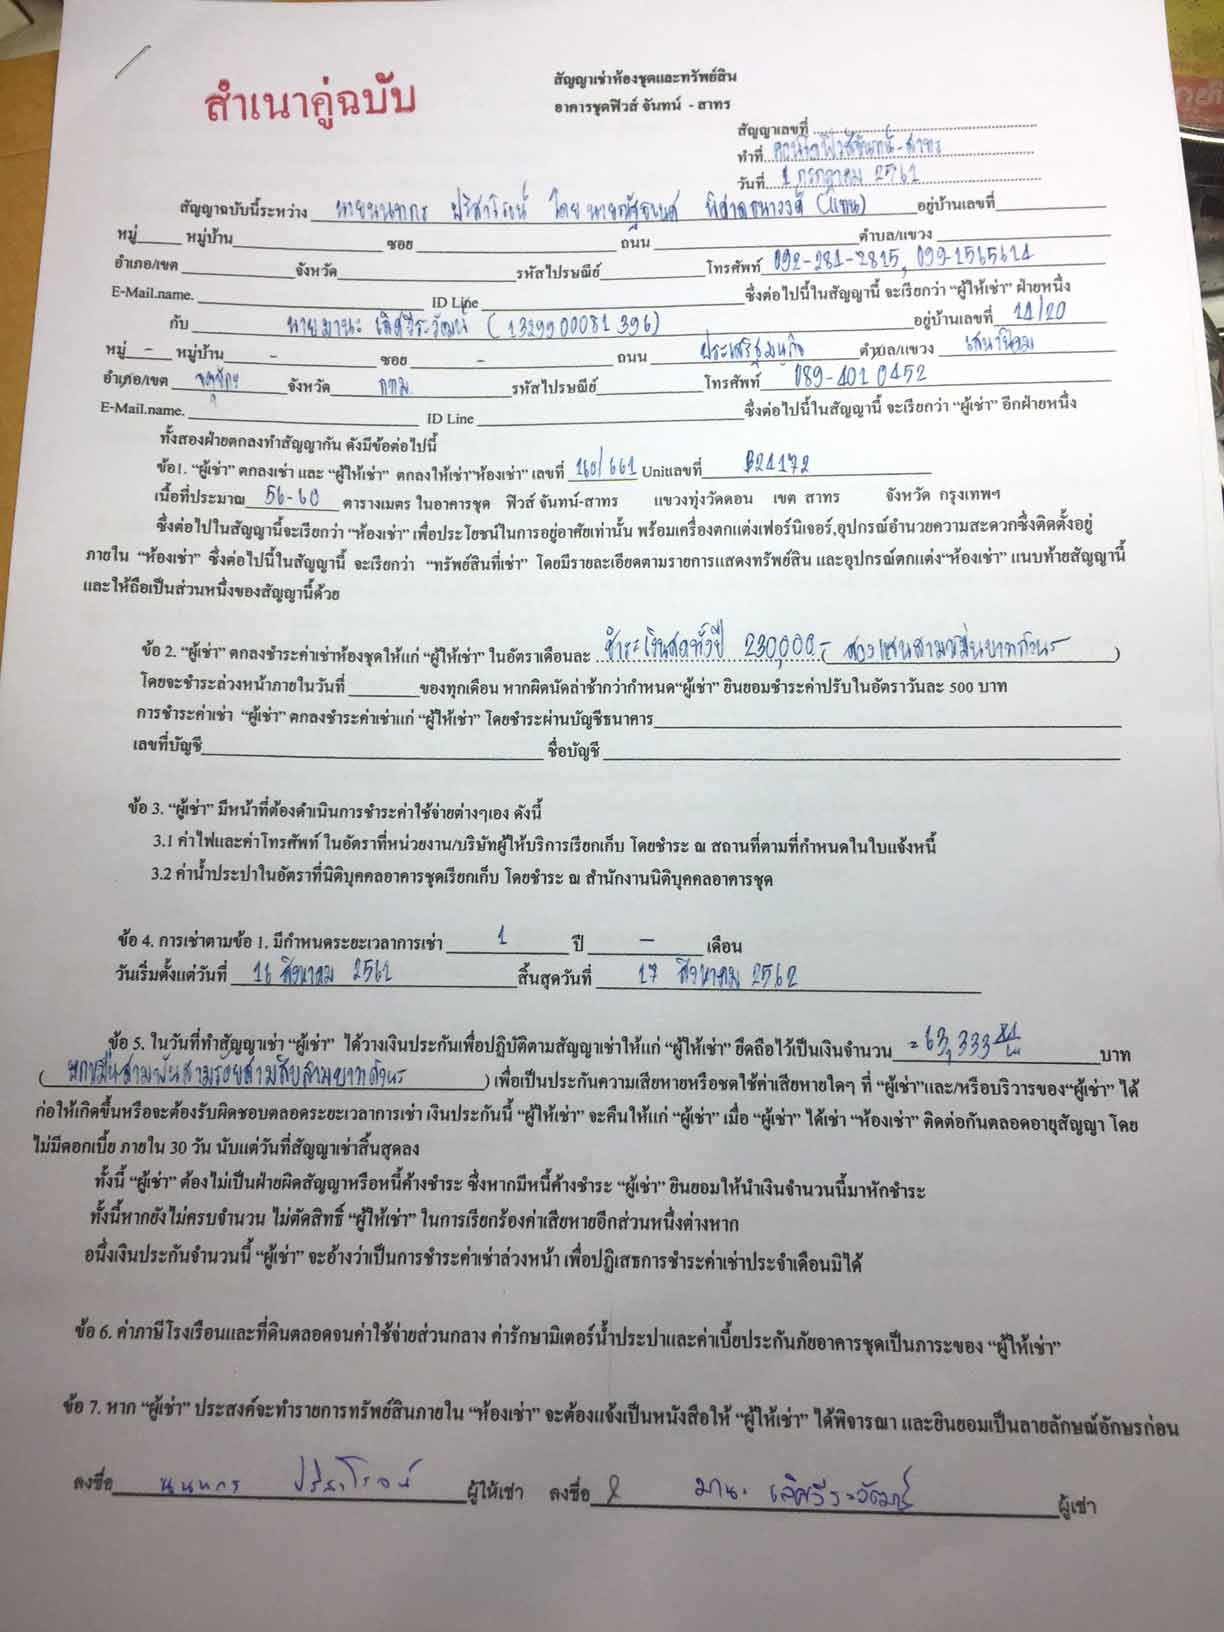 สำเนาคู่ฉบับ
สัญญาเช่าห้องชุดและทรัพย์สิน
อาคารชุดฟิวส์ จันทน์ - สาทร
สัญญาเลขที่
ทำที่ คอนโดฟิวส์จันทน์-สาทร
วันที่ 1 กรกฎาคม 2561
สัญญาฉบับนี้ระหว่าง นายนนทกร ปริสาโรจน์ โดย นายณัฐธเนศ พิศาลธนาวงศ์ (แทน) อยู่บ้านเลขที่
หมู่ หมู่บ้าน ซอย ถนน ตำบล/แขวง
อำเภอ/เขต จังหวัด รหัสไปรษณีย์ โทรศัพท์ 092-281-2815, 099-1565614
E-Mail.name. ID Line ซึ่งต่อไปนี้ในสัญญานี้ จะเรียกว่า “ผู้ให้เช่า” ฝ่ายหนึ่ง
กับ นายมานะ เลิศวีระวัฒน์ (1329900081396) อยู่บ้านเลขที่ 11/20
หมู่ - หมู่บ้าน - ซอย - ถนน ประเสริฐมนูกิจ ตำบล/แขวง เสนานิคม
อำเภอ/เขต จตุจักร จังหวัด กทม. รหัสไปรษณีย์ โทรศัพท์ 089-401 0452
E-Mail.name. ID Line ซึ่งต่อไปนี้ในสัญญานี้ จะเรียกว่า “ผู้เช่า” อีกฝ่ายหนึ่ง
ทั้งสองฝ่ายตกลงทำสัญญากัน ดังมีข้อต่อไปนี้
ข้อ1. “ผู้เช่า” ตกลงเช่า และ “ผู้ให้เช่า” ตกลงให้เช่า“ห้องเช่า” เลขที่ 160/661 Unitเลขที่ B24172
เนื้อที่ประมาณ 56-60 ตารางเมตร ในอาคารชุด ฟิวส์ จันทน์-สาทร แขวงทุ่งวัดดอน เขต สาทร จังหวัด กรุงเทพฯ
ซึ่งต่อไปในสัญญานี้จะเรียกว่า “ห้องเช่า” เพื่อประโยชน์ในการอยู่อาศัยเท่านั้น พร้อมเครื่องตกแต่งเฟอร์นิเจอร์,อุปกรณ์อำนวยความสะดวกซึ่งติดตั้งอยู่
ภายใน “ห้องเช่า” ซึ่งต่อไปนี้ในสัญญานี้ จะเรียกว่า “ทรัพย์สินที่เช่า” โดยมีรายละเอียดตามรายการแสดงทรัพย์สิน และอุปกรณ์ตกแต่ง“ห้องเช่า” แนบท้ายสัญญานี้
และให้ถือเป็นส่วนหนึ่งของสัญญานี้ด้วย
ข้อ 2. “ผู้เช่า” ตกลงชำระค่าเช่าห้องชุดให้แก่ “ผู้ให้เช่า” ในอัตราเดือนละ ชำระเงินสดทั้งปี 230,000.- (สองแสนสามหมื่นบาทถ้วน)
โดยจะชำระล่วงหน้าภายในวันที่ ของทุกเดือน หากผิดนัดล่าช้ากว่ากำหนด“ผู้เช่า” ยินยอมชำระค่าปรับในอัตราวันละ 500 บาท
การชำระค่าเช่า “ผู้เช่า” ตกลงชำระค่าเช่าแก่ “ผู้ให้เช่า” โดยชำระผ่านบัญชีธนาคาร
เลขที่บัญชี ชื่อบัญชี
ข้อ 3. “ผู้เช่า” มีหน้าที่ต้องดำเนินการชำระค่าใช้จ่ายต่างๆเอง ดังนี้
3.1 ค่าไฟและค่าโทรศัพท์ ในอัตราที่หน่วยงาน/บริษัทผู้ให้บริการเรียกเก็บ โดยชำระ ณ สถานที่ตามที่กำหนดในใบแจ้งหนี้
3.2 ค่าน้ำประปาในอัตราที่นิติบุคคลอาคารชุดเรียกเก็บ โดยชำระ ณ สำนักงานนิติบุคคลอาคารชุด
ข้อ 4. การเช่าตามข้อ 1. มีกำหนดระยะเวลาการเช่า 1 ปี - เดือน
วันเริ่มตั้งแต่วันที่ 16 สิงหาคม 2561 สิ้นสุดวันที่ 17 สิงหาคม 2562
ข้อ 5. ในวันที่ทำสัญญาเช่า “ผู้เช่า” ได้วางเงินประกันเพื่อปฏิบัติตามสัญญาเช่าให้แก่ “ผู้ให้เช่า” ยึดถือไว้เป็นเงินจำนวน = 63,333 บาท
(หกหมื่นสามพันสามร้อยสามสิบสามบาทถ้วน) เพื่อเป็นประกันความเสียหายหรือชดใช้ค่าเสียหายใดๆ ที่ “ผู้เช่า”และ/หรือบริวารของ“ผู้เช่า” ได้
ก่อให้เกิดขึ้นหรือจะต้องรับผิดชอบตลอดระยะเวลาการเช่า เงินประกันนี้ “ผู้ให้เช่า” จะคืนให้แก่ “ผู้เช่า” เมื่อ “ผู้เช่า” ได้เช่า “ห้องเช่า” ติดต่อกันตลอดอายุสัญญา โดย
ไม่มีดอกเบี้ย ภายใน 30 วัน นับแต่วันที่สัญญาเช่าสิ้นสุดลง
ทั้งนี้ “ผู้เช่า” ต้องไม่เป็นฝ่ายผิดสัญญาหรือหนี้ค้างชำระ ซึ่งหากมีหนี้ค้างชำระ “ผู้เช่า” ยินยอมให้นำเงินจำนวนนี้มาหักชำระ
ทั้งนี้หากยังไม่ครบจำนวน ไม่ตัดสิทธิ์ “ผู้ให้เช่า” ในการเรียกร้องค่าเสียหายอีกส่วนหนึ่งต่างหาก
อนึ่งเงินประกันจำนวนนี้ “ผู้เช่า” จะอ้างว่าเป็นการชำระค่าเช่าล่วงหน้า เพื่อปฏิเสธการชำระค่าเช่าประจำเดือนมิได้
ข้อ 6. ค่าภาษีโรงเรือนและที่ดินตลอดจนค่าใช้จ่ายส่วนกลาง ค่ารักษามิเตอร์น้ำประปาและค่าเบี้ยประกันภัยอาคารชุดเป็นภาระของ “ผู้ให้เช่า”
ข้อ 7. หาก “ผู้เช่า” ประสงค์จะทำรายการทรัพย์สินภายใน “ห้องเช่า” จะต้องแจ้งเป็นหนังสือให้ “ผู้ให้เช่า” ได้พิจารณา และยินยอมเป็นลายลักษณ์อักษรก่อน
ลงชื่อ นนทกร ปริสาโรจน์ ผู้ให้เช่า ลงชื่อ มานะ เลิศวีระวัฒน์ ผู้เช่า